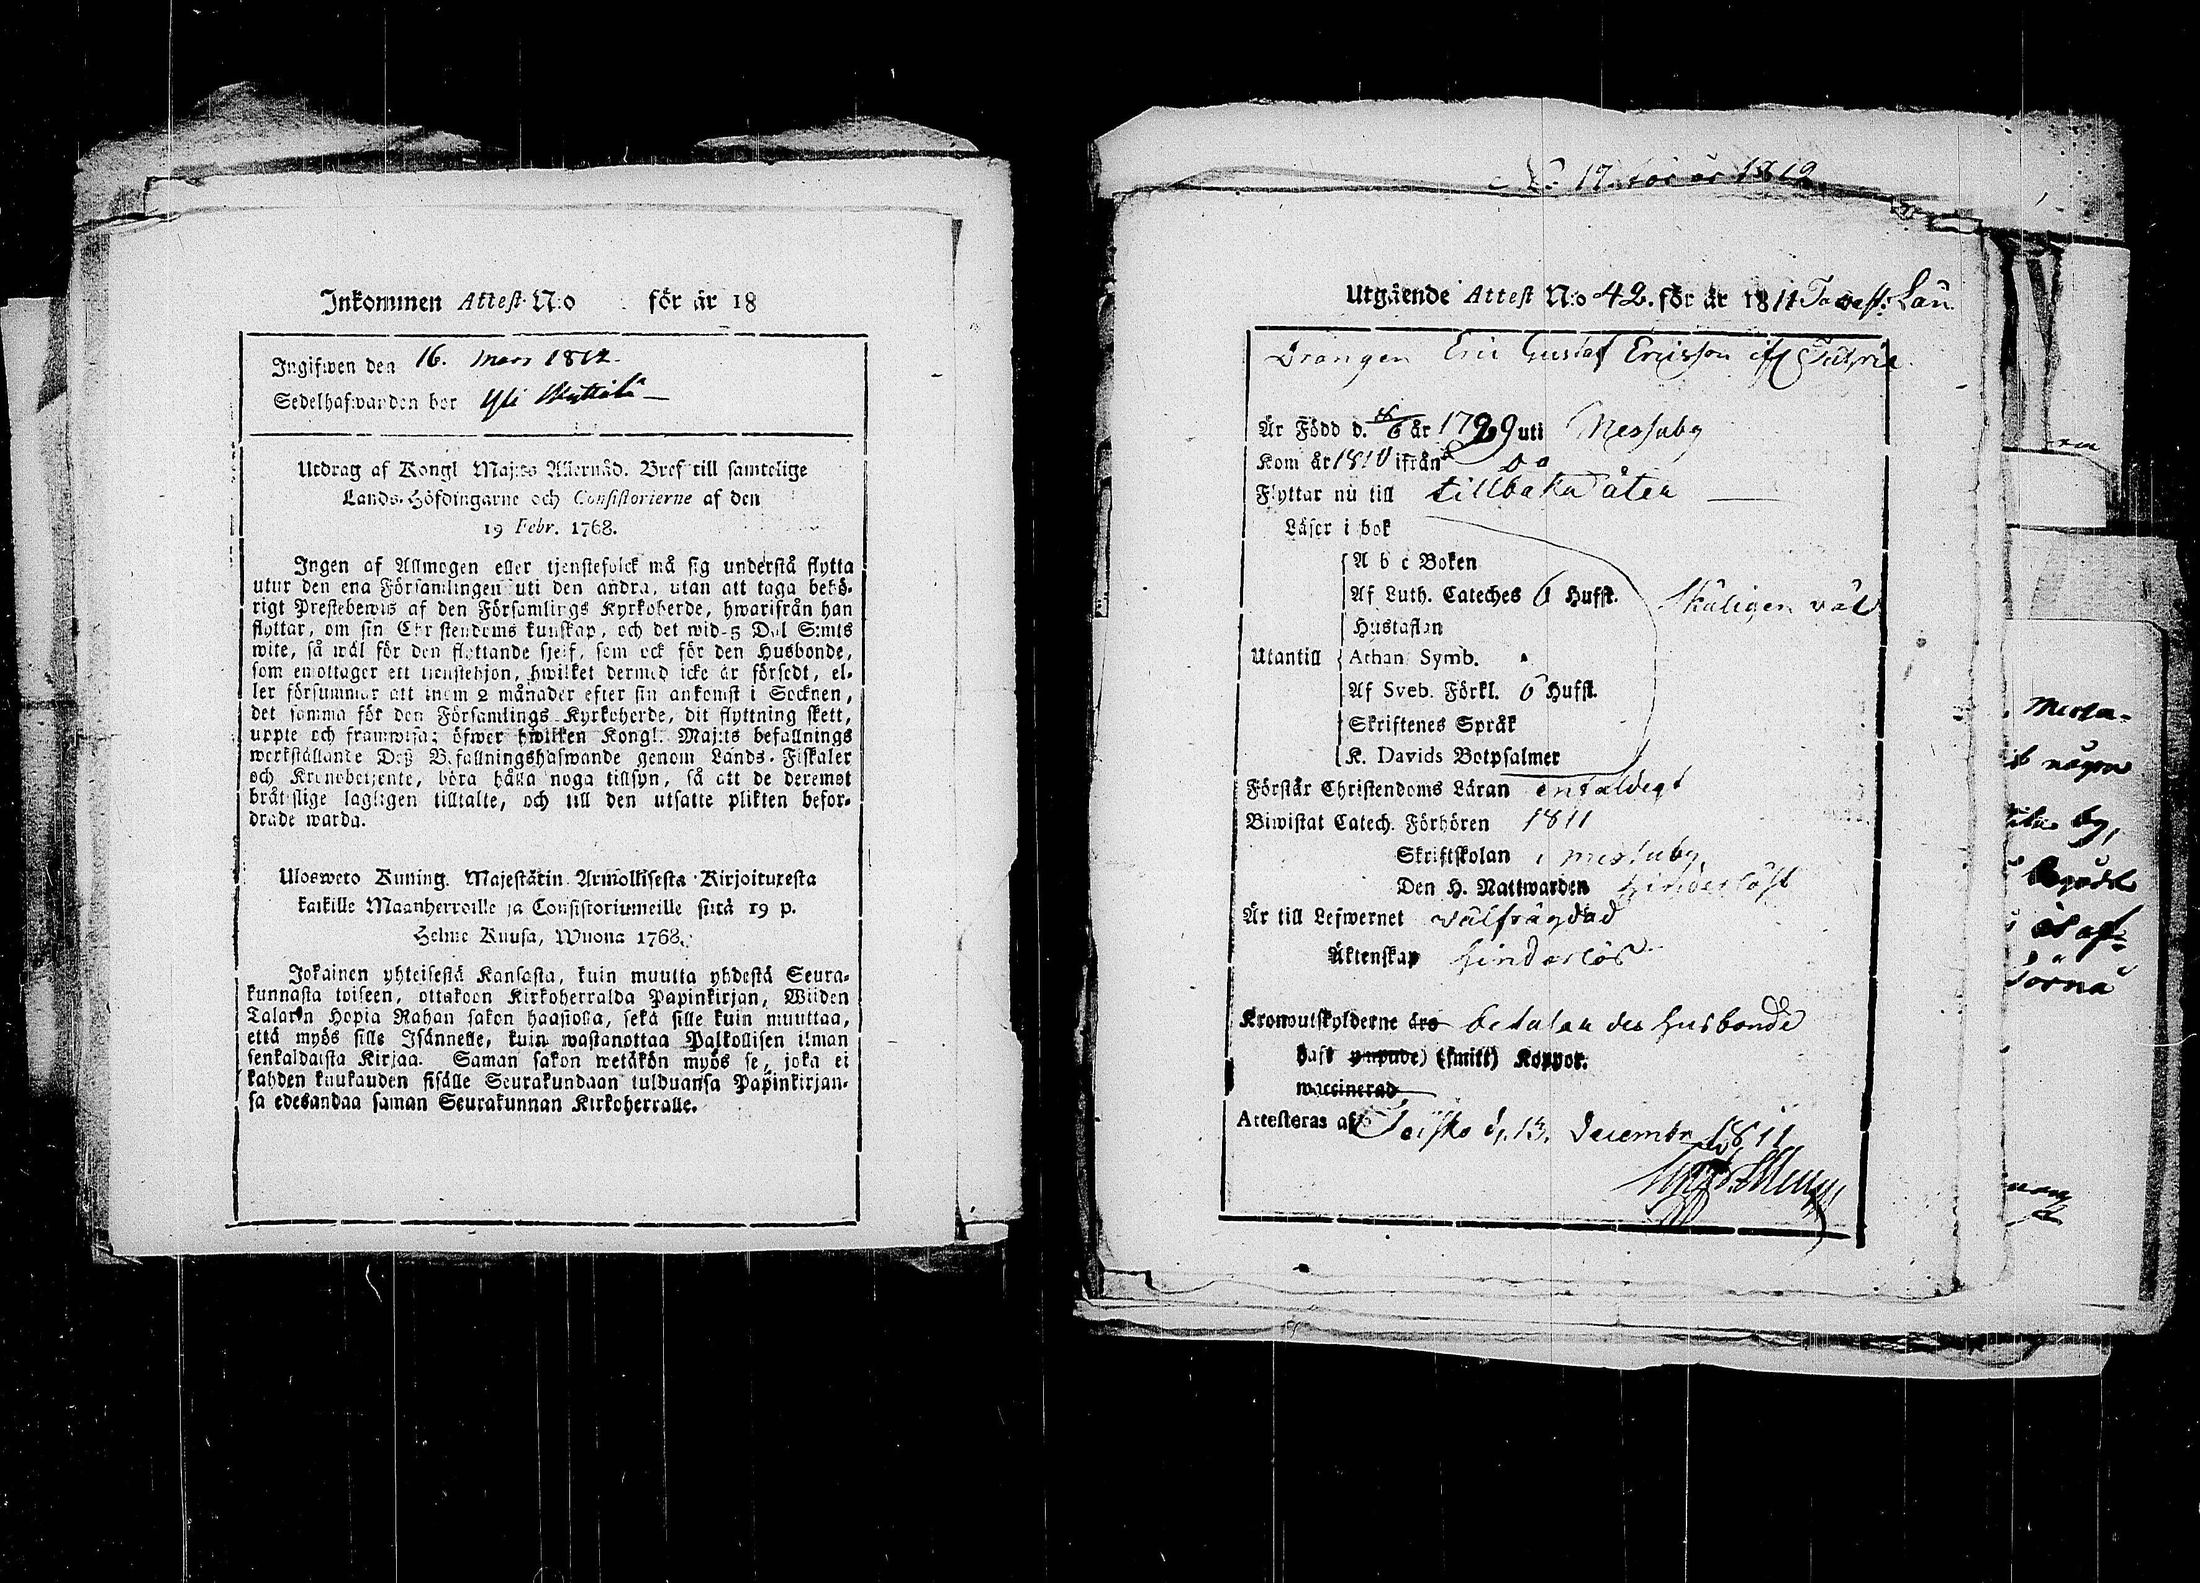 Inkommen Attest N:o för år 18
Ingifwen den 16. Mars 1812.
Sedelhafwanden bor Yli
Utdrag af Kongl Maj:ts Allernåd. Bref till samtelige
Lands-Höfdingarne och Consistorierne af den
19 Febr. 1768.
Ingen af Allmogen eller tjenstefolck må sig understå flytta
utur den ena Församlingen uti den andra, utan att taga behö-
rigt Prestebewis af den Församlings Kyrkoherde, hwarifrån han
flyttar, om sin Christendoms kunskap, och det wid 5 Dal S:mts
wite, så wäl för den flyttande sjelf, som ock för den Husbonde,
som emottager ett tienstehjon, hwilket dermed icke är försedt, el-
ler försummar att inom 2 månader efter sin ankomst i Socknen,
det samma för den Församlings Kyrkoherde, dit flyttning skett,
uppte och framwisa; öfwer hwilken Kongl. Maj:ts befallnings
werkställande Deß Befallningshafwande genom Lands-Fiskaler
och Kronobetjente, böra hålla noga tillsyn, så att de deremot
bråtslige lagligen tilltalte, och till den utsatte plikten befor-
drade warda.
Ulosweto Kuning. Majestätin Armollisesta Kirjoituxesta
kaikille Maanherroille ja Consistoriumeille siitä 19 p.
Helme Kuusa, Wuona 1768.
Jokainen yhteisestä Kansasta, kuin muutta yhdestä Seura-
kunnasta toiseen, ottakoon Kirkoherralda Papinkirjan, Wiiden
Talarin Hopia Rahan sakon haastolla, sekä sille kuin muuttaa,
että myös sille Isännelle, kuin wastanottaa Palkollisen ilman
senkaldaista Kirjaa. Saman sakon wetäkön myös se, joka ei
kahden kuukauden sisälle Seurakundaan tulduansa Papinkirjan-
sa edesandaa saman Seurakunnan Kirkoherralle.
No 17 för år 1812
Utgående Attest N:o 42. för år 1811 Tavast: Län.
Drängen Eric Gustaf Ericsson
Är Född d. år 1799 uti Messuby
Kom år 1810 ifrån Do
Flyttar nu till tillbaka åter
Läser i bok
A b c Boken
Af Luth. Cateches 6 Hufst. skäligen väl
Hustaflan
Utantill Athan. Symb.
Af Sveb. Förkl. 6 Hufst.
Skriftenes Språk
K. Davids Botpsalmer
Förstår Christendoms Läran enfaldigt
Biwistat Catech. Förhören 1811
Skriftskolan i Messuby
Den H. Nattwarden hinderlöst
Är till Lefwernet välfrägdad
Äktenskap hinderlös
Kronoutskylderne äro betalar des Husbonde
haft ympade) (smitt) Koppor.
waccinerad
Attesteras af Teisko d. 13. Decembr 1811
Messu-
någon
by,
af